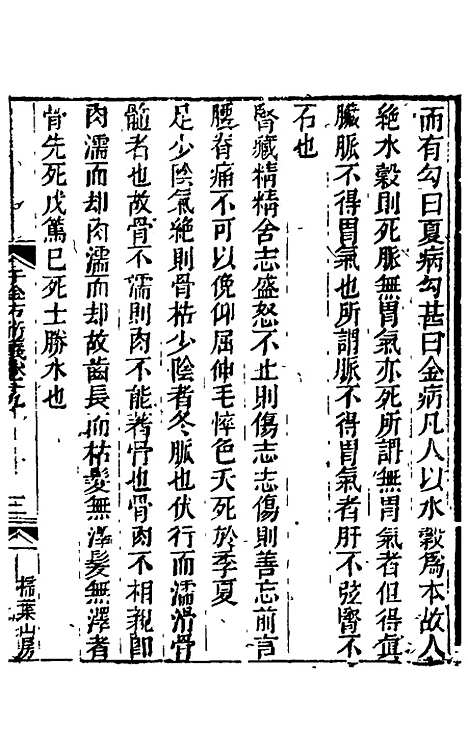 而有勾曰夏病勾甚曰金病凡人以水穀爲本故人
絶水穀則死脈無胃氣亦死所謂無胃氣者但得眞
臟脈不得胃氣也所謂脈不得胃氣者肝不弦腎不
石也
腎藏精精舍志盛怒不止則傷志志傷則善忘前言
腰脊痛不可以俛仰屈伸毛悴色夭死於季夏
足少陰氣絶則骨枯少陰者冬脈也伏行而濡滑骨
髓者也故骨不濡則肉不能著骨也骨肉不相親卽
肉濡而却肉濡而却故齒長而枯髮無澤髮無澤者
骨先死戊篤巳死士勝水也
千金方衍義卷十九
掃葉山房